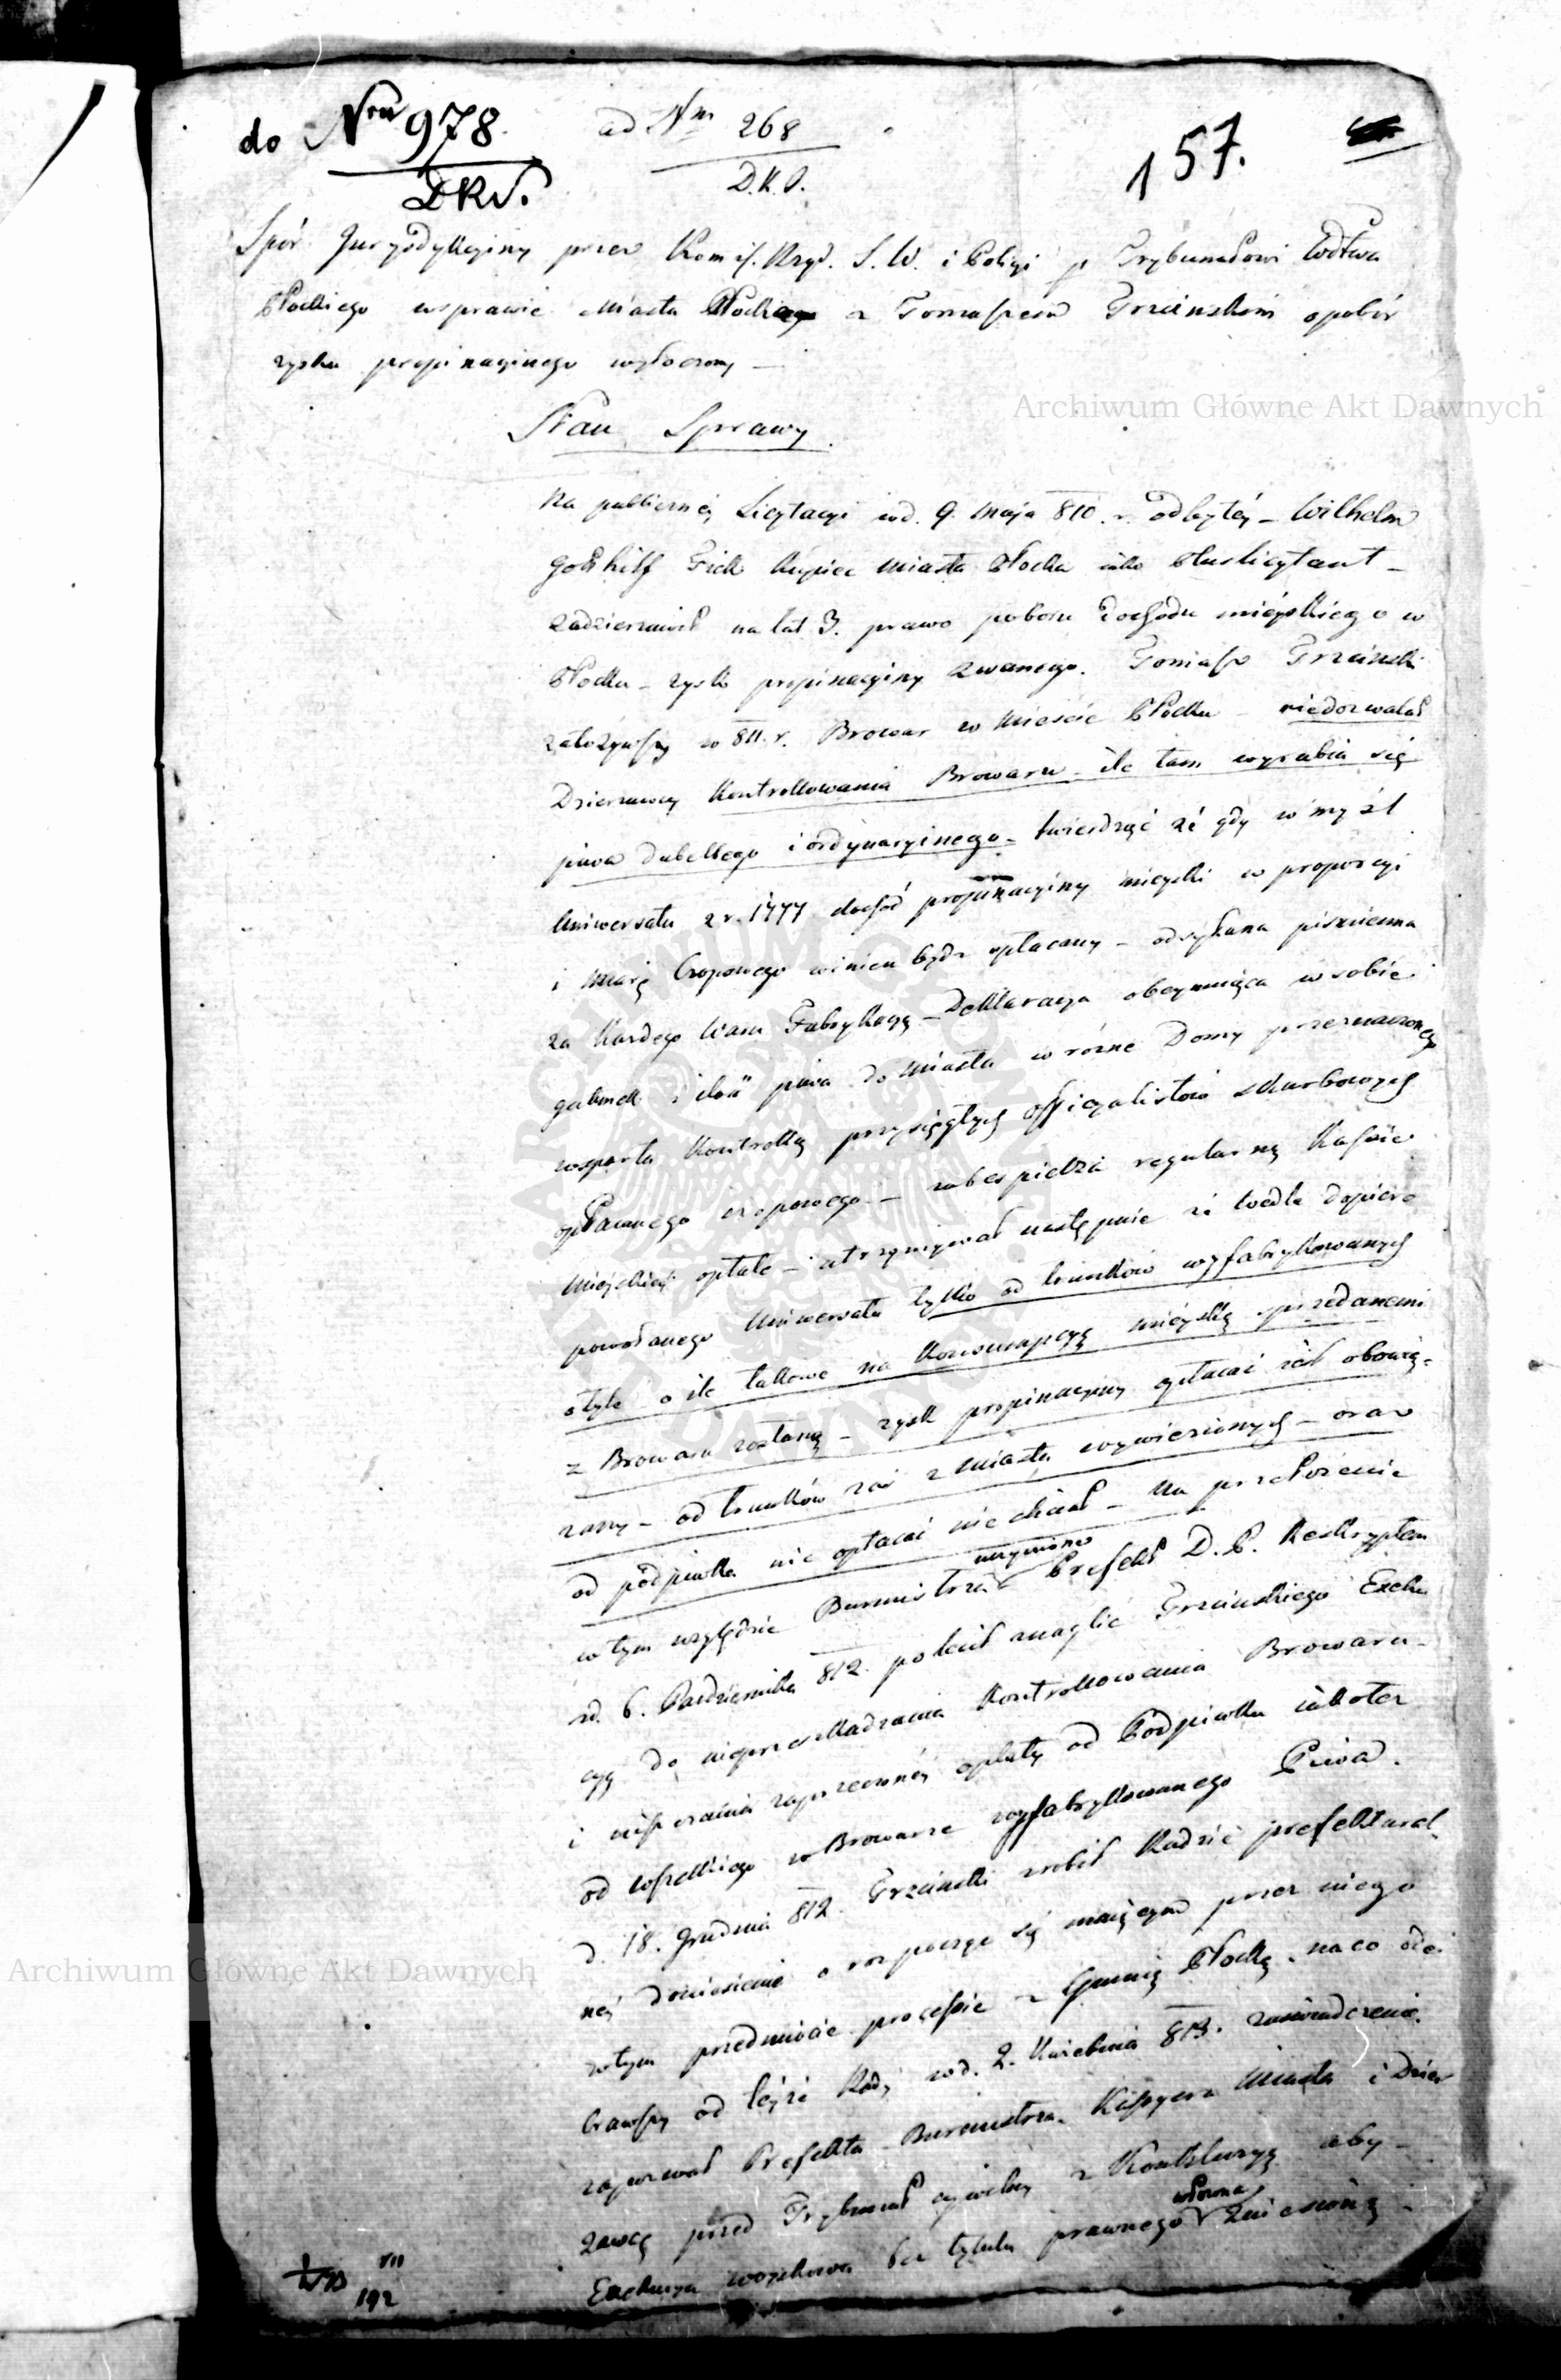 do Nru 978
DKP.
ad Nm 268
D.K.P.
157.
Spór Juryzdykcyiny przez Komis. Rząd. S. W. i Policyi p Trybunałowi Wdztwa
Płockiego w sprawie Miasta Płockiego z Tomaszem Trzcińskim o pobór
zysku propinacyinego wytoczony —
Stan Sprawy.
Na publiczney Licytacyi w d. 9. Maja 810. r. odbytéy — Wilhelm
Gotthilf Fick Kupiec Miasta Płocka iako Pluslicytant —
zadzierzawił na lat 3. prawo poboru dochodu mieyskiego w
Płocku — zysk propinacyiny zwanego. Tomasz Trzciński
założywszy w 811. r. Browar w Mieście Płocku — niedozwalał
Dzierzawcy kontrollowania Browaru — ile tam wyrabia się
piwa dubeltego i ordynaryinego — twierdząc że gdy w myśl
Uniwersału z r. 1777 dochód propinacyiny mieyski w proporcyi
i miarę Czopowego winien bydź opłacany — odsyłana piśmienna
za każdego Waru Fabrykacyą — Deklaracya obeymuiąca w sobie
gatunek i ilość piwa do Miasta w rożne Domy przeznaczonego
wsparta kontrollą przysięgłych officyalistów skarbowych
opłacanego czopowego — zabespiecza regularną Kassie
Mieyskiey opłatę — utrzymywał następnie że wedle dopiero
powołanego Uniwersału tylko od trunków wyfabrykowanych
o tyle o ile takowe na konsumpcyą mieyską sprzedanemi
z Browaru zostaną — zysk propinacyiny opłacać iest obowią-
zany — od trunków zaś z miasta wywiezionych — oraz
od podpiwka nic opłacać nie chciał — Na przełożenie
w tym względzie Burmistrza uczynione Prefekt D. P. Reskryptem
z d. 6. Października 812. polecił naglić Trzcińskiego Exeku
cyą do nieprzeszkadzania kontrollowania Browaru —
i uiszczania zaprzeczonéy opłaty od Podpiwku iakotez
od wszelkiego w Browarze wyfabrykowanego Piwa.
D. 18. Grudnia 812. Trzciński zrobił Radzie prefektural-
néy doniesienie o rozpocząć się maiącym przez niego
w tym przedmiocie processie z Gminą Płocką, na co ode-
brawszy od teyże Rady w d. 2. Kwietnia 813. zaświadczenie
zapozwał Prefekta — Burmistrza, Kassyera Miasta i Dzier
zawcę przed Trybunał cywilny z Konkluzyą aby —
Exekucya woyskowa bez tytułu prawnego zniesioną
192
VII